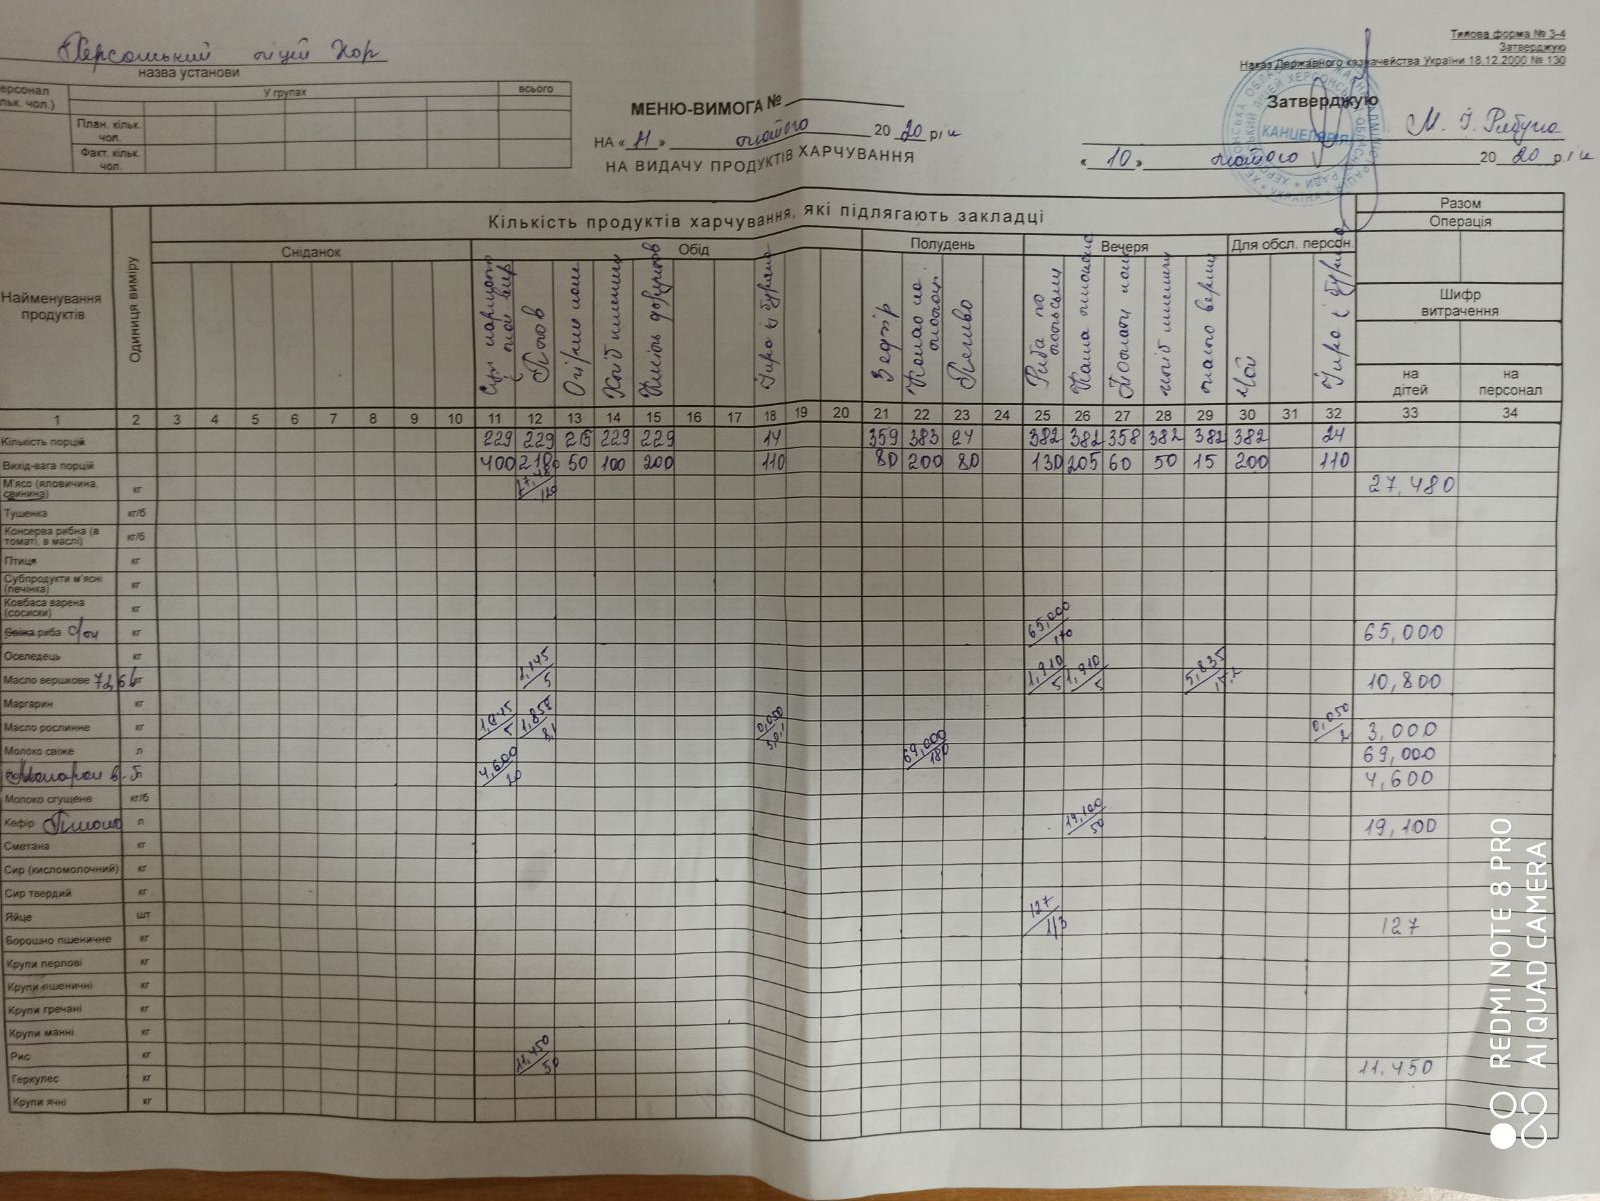 Типова форма № 3-4
Затверджую
Наказ Державного казначейства України 18.12.2000 № 130
Херсонський ліцей Хор
назва установи
персонал
У групах
всього
План. кільк. чол.
Факт. кільк. чол.
МЕНЮ-ВИМОГА №
НА « 11 » лютого 20 20 рік
НА ВИДАЧУ ПРОДУКТІВ ХАРЧУВАННЯ
Затверджую
КАНЦЕЛЯРІЯ
М. І.
« 10 » лютого 20 20 р.
Найменування продуктів
Одиниця виміру
Кількість продуктів харчування, які підлягають закладці
Разом
Операція
Сніданок Обід Полудень Вечеря Для обсл. персон.
Шифр витрачення
на дітей
на персонал
Плов
Хліб пшенич
Зефір
Какао
Печиво
Риба по польськи
Каша
масло вершк
Чай
1 2 3 4 5 6 7 8 9 10 11 12 13 14 15 16 17 18 19 20 21 22 23 24 25 26 27 28 29 30 31 32 33 34
Кількість порцій 229 229 215 229 229 14 359 383 24 382 382 358 382 382 382 24
Вихід-вага порцій 400 50 100 200 110 80 200 80 130 205 60 50 15 200 110
М'ясо (яловичина, свинина) кг 27,480
Тушенка кг/б
Консерва рибна (в томаті, в маслі) кг/б
Птиця кг
Субпродукти м'ясні (печінка) кг
Ковбаса варена (сосиски) кг
Свіжа риба кг 65,000 65,000
Оселедець кг
Масло вершкове кг 1,145/5 1,910/5 1,910/5 5,835 10,800
Маргарин кг
Масло рослинне кг 0,050 0,050/2 3,000
Молоко свіже л 69,000/180 69,000
Макарон 4,600/20 4,600
Молоко згущене кг/б
Кефір Пшоно л 19,100/50 19,100
Сметана кг
Сир (кисломолочний) кг
Сир твердий кг
Яйце шт 127/1/3 127
Борошно пшеничне кг
Крупи перлові кг
Крупи пшеничні кг
Крупи гречані кг
Крупи манні кг
Рис кг 11,450/50 11,450
Геркулес кг
Крупи ячні кг
REDMI NOTE 8 PRO
AI QUAD CAMERA